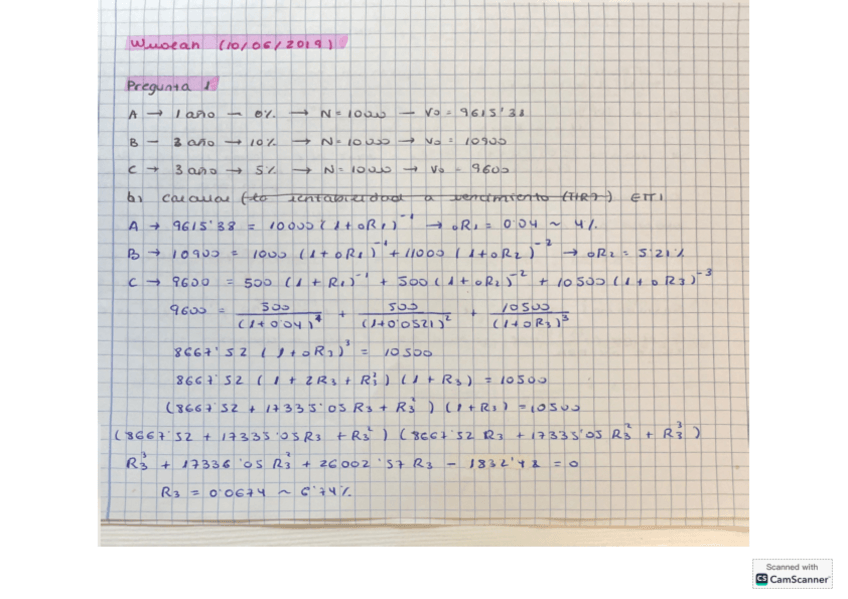 Wuolah (10/06/2019)
Pregunta 1
A → 1 año — 0% → N = 10000 — V₀ = 9615'38
B — 2 año → 10% → N = 10000 → V₀ = 10900
C → 3 año → 5% → N = 10000 → V₀ = 9600
b) Calcular (la rentabilidad a vencimiento (TIR)) ETTI
A → 9615'38 = 10000 (1 + ₀R₁)⁻¹ → ₀R₁ = 0'04 ~ 4%
B → 10900 = 1000 (1 + ₀R₁)⁻¹ + 11000 (1 + ₀R₂)⁻² → ₀R₂ = 5'21%
C → 9600 = 500 (1 + R₁)⁻¹ + 500 (1 + ₀R₂)⁻² + 10500 (1 + ₀R₃)⁻³
9600 = 500/(1+0'04)¹ + 500/(1+0'0521)² + 10500/(1+₀R₃)³
8667'52 (1 + ₀R₃)³ = 10500
8667'52 (1 + 2R₃ + R₃²) (1 + R₃) = 10500
(8667'52 + 17335'05 R₃ + R₃²) (1 + R₃) = 10500
(8667'52 + 17335'05 R₃ + R₃²) (8667'52 R₃ + 17335'05 R₃² + R₃³)
R₃³ + 17336'05 R₃² + 26002'57 R₃ − 1832'48 = 0
R₃ = 0'0674 ~ 6'74%
Scanned with
CS CamScanner